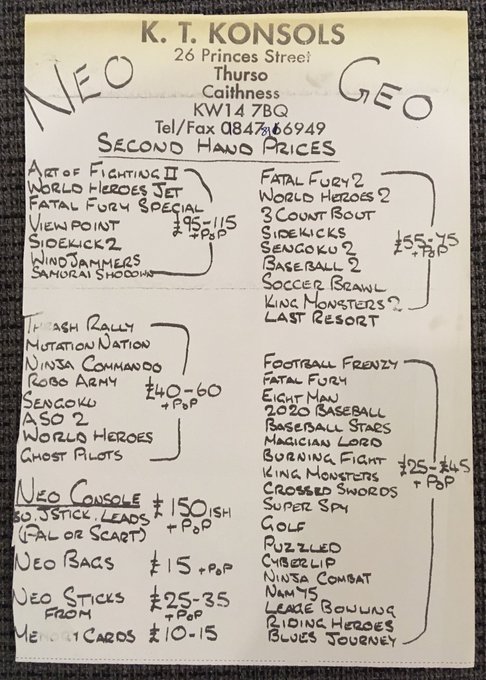 K. T. KONSOLS
26 Princes Street
Thurso
Caithness
KW14 7BQ
Tel/Fax 66949
NEO GEO
SECOND HAND PRICES
ART OF FIGHTING II
WORLD HEROES JET
FATAL FURY SPECIAL
VIEWPOINT
SIDEKICK 2
WINDJAMMERS
SAMURAI SHODOWN
£95-115
+ P&P
FATAL FURY 2
WORLD HEROES 2
3 COUNT BOUT
SIDEKICKS
SENGOKU 2
BASEBALL 2
SOCCER BRAWL
KING MONSTERS 2
LAST RESORT
£55-75
+ P&P
THRASH RALLY
MUTATION NATION
NINJA COMMANDO
ROBO ARMY
SENGOKU
ASO 2
WORLD HEROES
GHOST PILOTS
£40-60
+ P&P
FOOTBALL FRENZY
FATAL FURY
EIGHT MAN
2020 BASEBALL
BASEBALL STARS
MAGICIAN LORD
BURNING FIGHT
KING MONSTERS
CROSSED SWORDS
SUPER SPY
GOLF
PUZZLED
CYBERLIP
NINJA COMBAT
NAM 75
LEAGE BOWLING
RIDING HEROES
BLUES JOURNEY
£25-£45
+ P&P
NEO CONSOLE
JSTICK, LEADS
(PAL OR SCART)
£150ISH
+ P&P
NEO BAGS £15 + P&P
NEO STICKS
FROM
£25-35
+ P&P
MEMORY CARDS £10-15